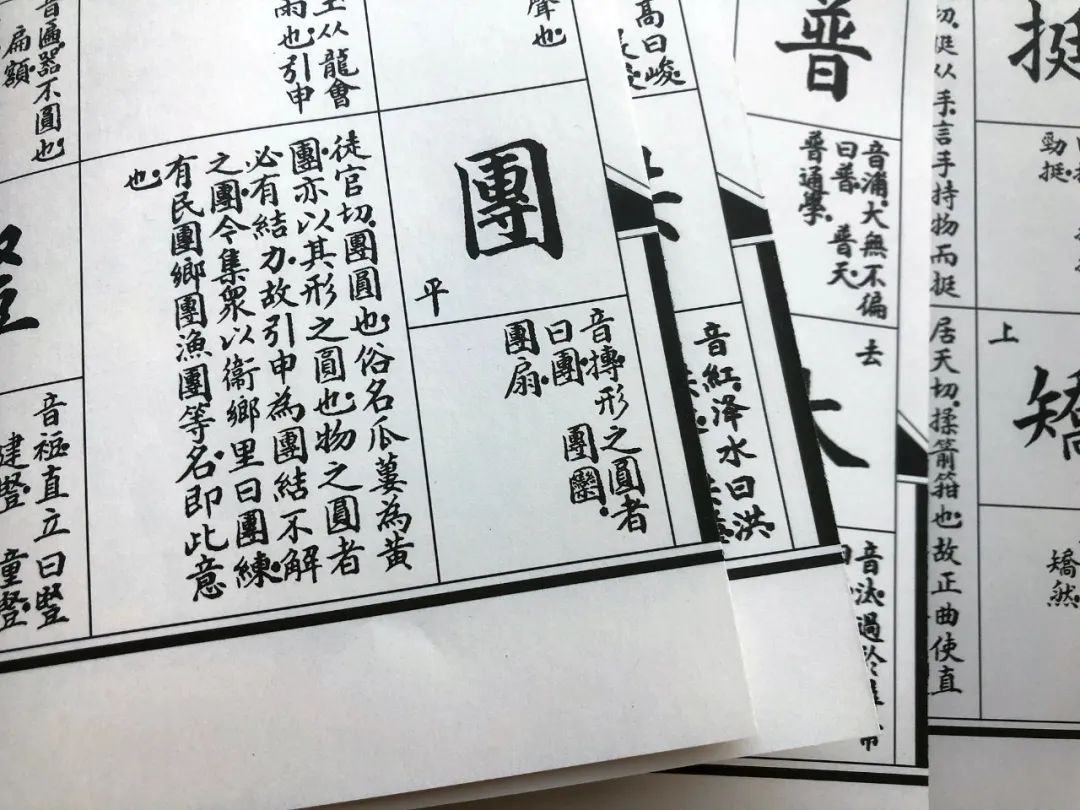 挺
勁挺。
切。挺从手。言手持物而挺
上
矯
矯然。
居天切。揉箭箝也。故正曲使直
普
音浦。大無不徧
曰普 普天
普通學。
去
音汰。過於
高曰峻。
音紅。泽水曰洪。
聲也。
从龍會
雨也。引申
團
平
音摶形之圓者
曰團。 團圞。
團扇。
徒官切。團圓也。俗名瓜蔞為黃
團亦以其形之圓也。物之圓者
必有結力。故引申為團結不解
之團。今集眾以衞鄉里曰團練。
有民團鄉團漁團等名。即此意
也。
音遍。器不圓也。
扁額。
直立曰豎
建豎。 童豎。